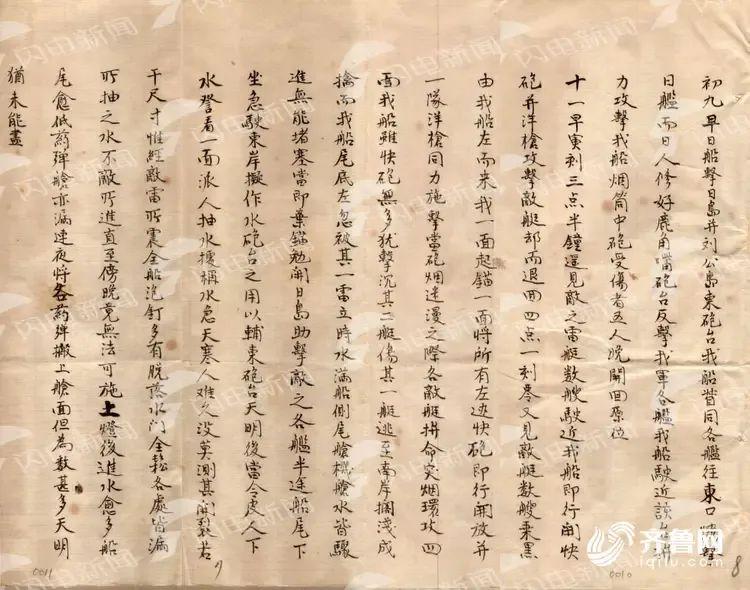 初九早日船擊日島并刘公島東砲台我船督同各艦往東口
日艦而日人修好鹿角嘴砲台反擊我軍各艦我船駛近該台
力攻擊我船烟筒中砲受傷者五人晚開回原位
十一早寅刻三点半鐘還見敵之雷艇数艘駛近我船即行開快
砲并洋槍攻擊敵艇却而退回四点一刻零又見敵艇数艘乘黑
由我船左而来我一面起锚一面將所有左边快砲即行開放并
一隊洋槍同力施擊當砲烟迷漫之際各敵艇拼命突烟環攻四
面我船雖快砲無多犹擊沉其二艇傷其一艇逃至南岸擱淺成
擒而我船尾底左忽被其一雷立時水滿船側尾艙機艙水皆驟
進無能堵塞當即棄錨勉開日島助擊敵之各艦半途船尾下
坐急駛東岸擬作水砲台之用以輔東砲台天明後當令皮人下
水督看一面派人抽水據稱水急天寒人难久没莫測其開裂若
干尺寸惟經敵雷所震全船泡釘多有脱落水门全鬆各處皆漏
所抽之水不敵所進直至傍晚竟無法可施上燈後進水愈多船
尾愈低葯彈艙亦漏連夜將各葯彈搬上艙面但為数甚多天明
猶未能盡
0011
9
0010
8
齐鲁网
iqilu.com
闪电新闻